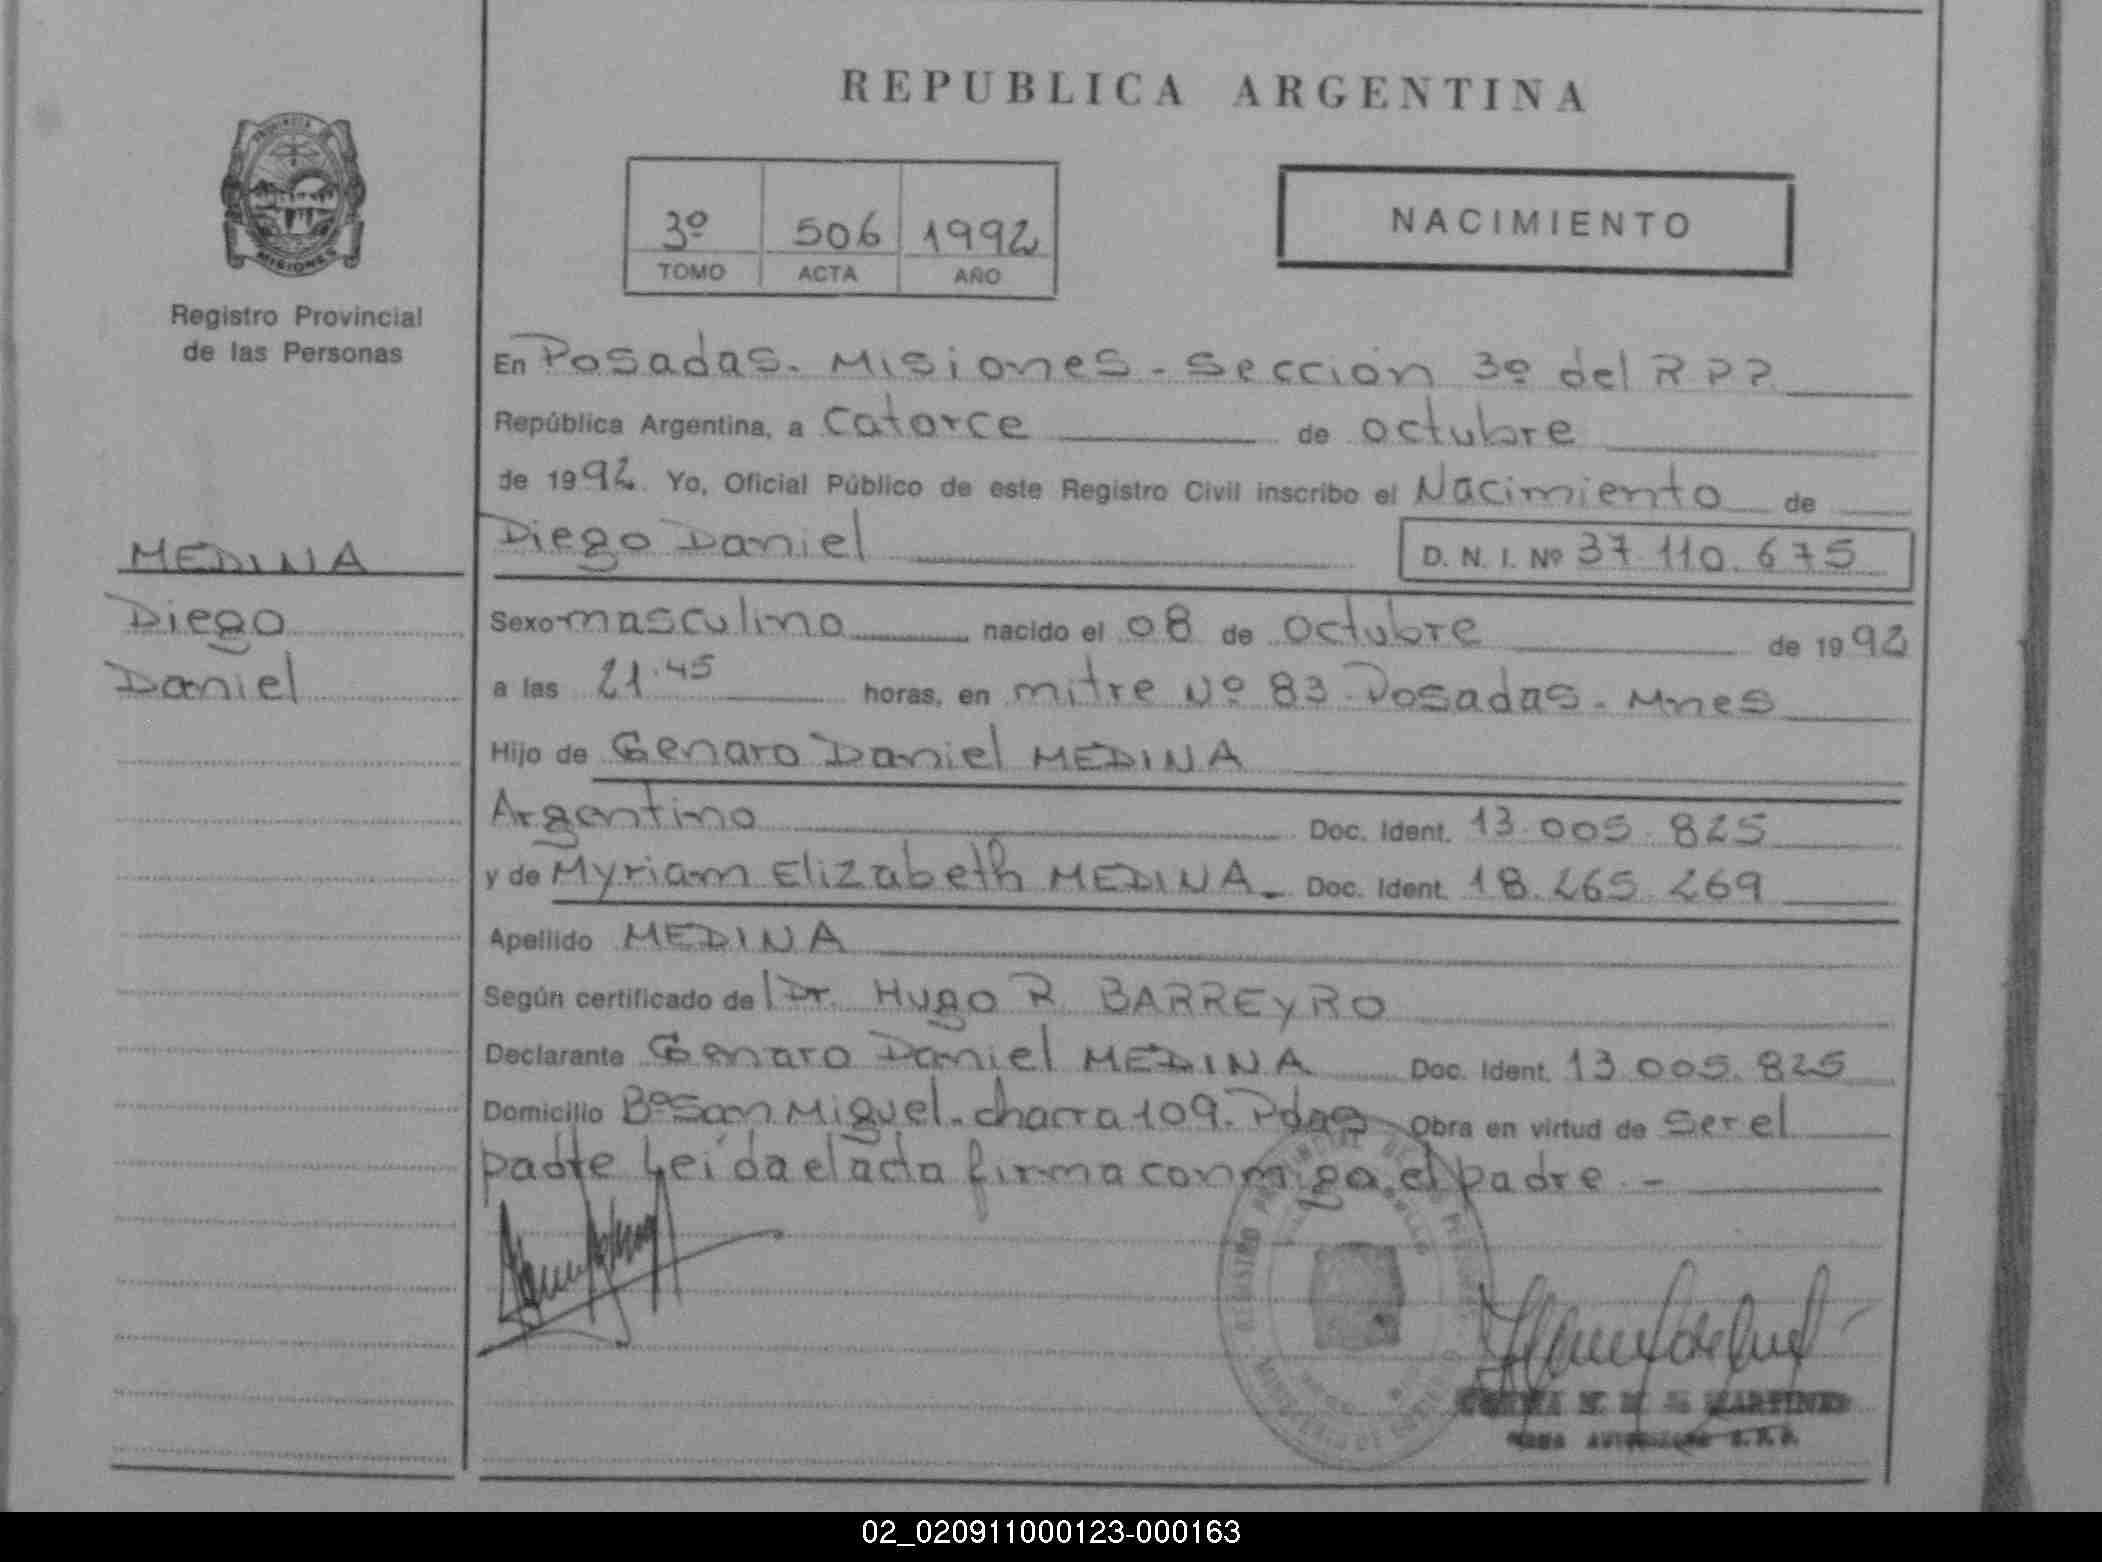 REPUBLICA ARGENTINA
PROVINCIA DE
MISIONES
Registro Provincial
de las Personas
3º 506 1992
TOMO ACTA AÑO
NACIMIENTO
En Posadas. Misiones - Sección 3º del R P P
República Argentina, a Catorce de octubre
de 1992. Yo, Oficial Público de este Registro Civil inscribo el Nacimiento de
MEDINA
Diego Daniel
D. N. I. Nº 37.110.675
Diego
Daniel
Sexo masculino nacido el 08 de octubre de 1992
a las 21.45 horas, en mitre Nº 83 Posadas. Mnes
Hijo de Genaro Daniel MEDINA
Argentino Doc. Ident. 13.005.825
y de Myriam Elizabeth MEDINA. Doc. Ident. 18.265.269
Apellido MEDINA
Según certificado de Dr. Hugo R. BARREYRO
Declarante Genaro Daniel MEDINA Doc. Ident. 13.005.825
Domicilio Bº San Miguel. charra 109. Pdas Obra en virtud de ser el
padre Leída el acta firma conmigo el padre. -
02_020911000123-000163